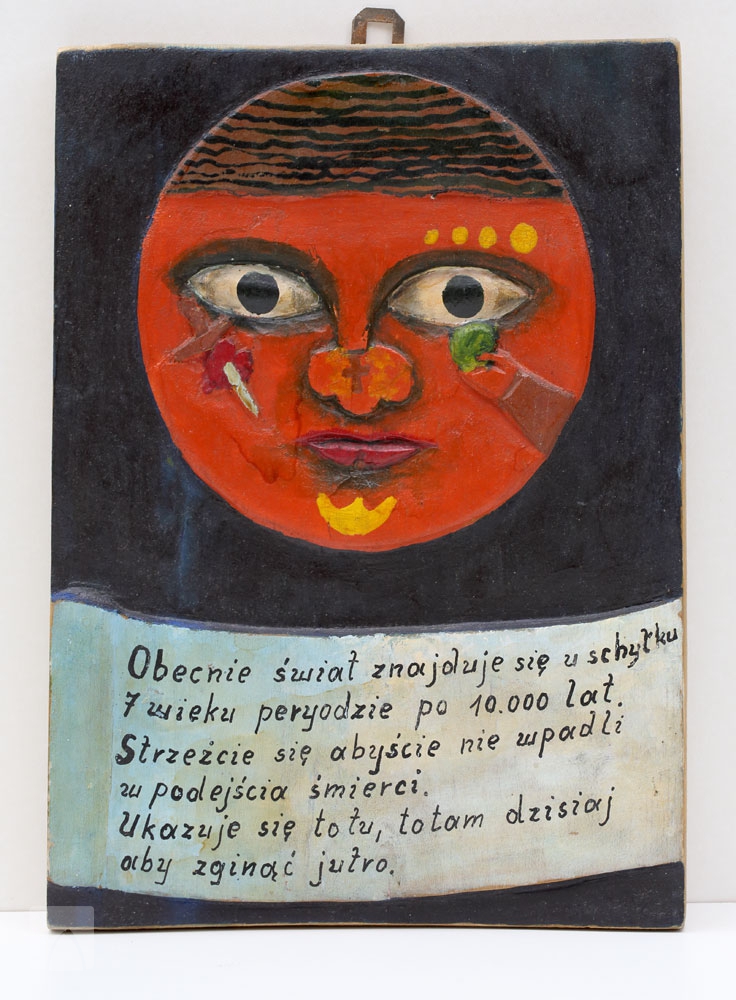 Obecnie świat znajduje się u schyłku
7 wieku peryodzie po 10.000 lat.
Strzeżcie się abyście nie wpadli
w podejścia śmierci.
Ukazuje się totu, totam dzisiaj
aby zginąć jutro.